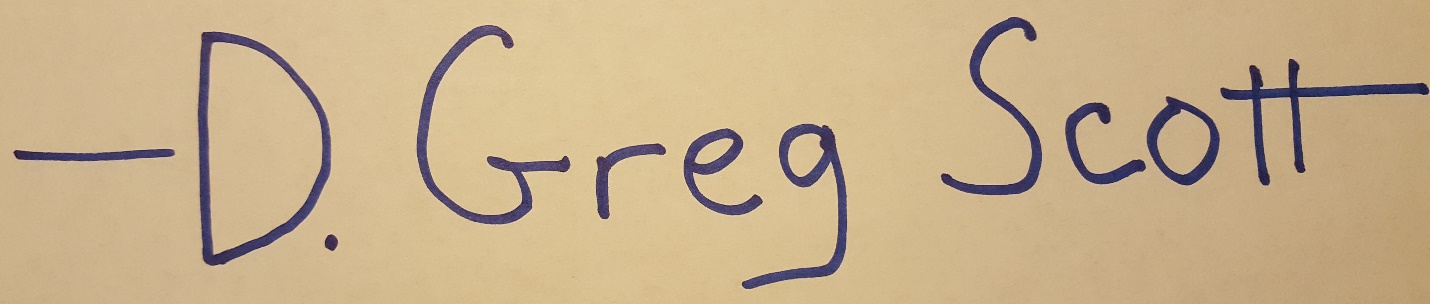 —D. Greg Scott